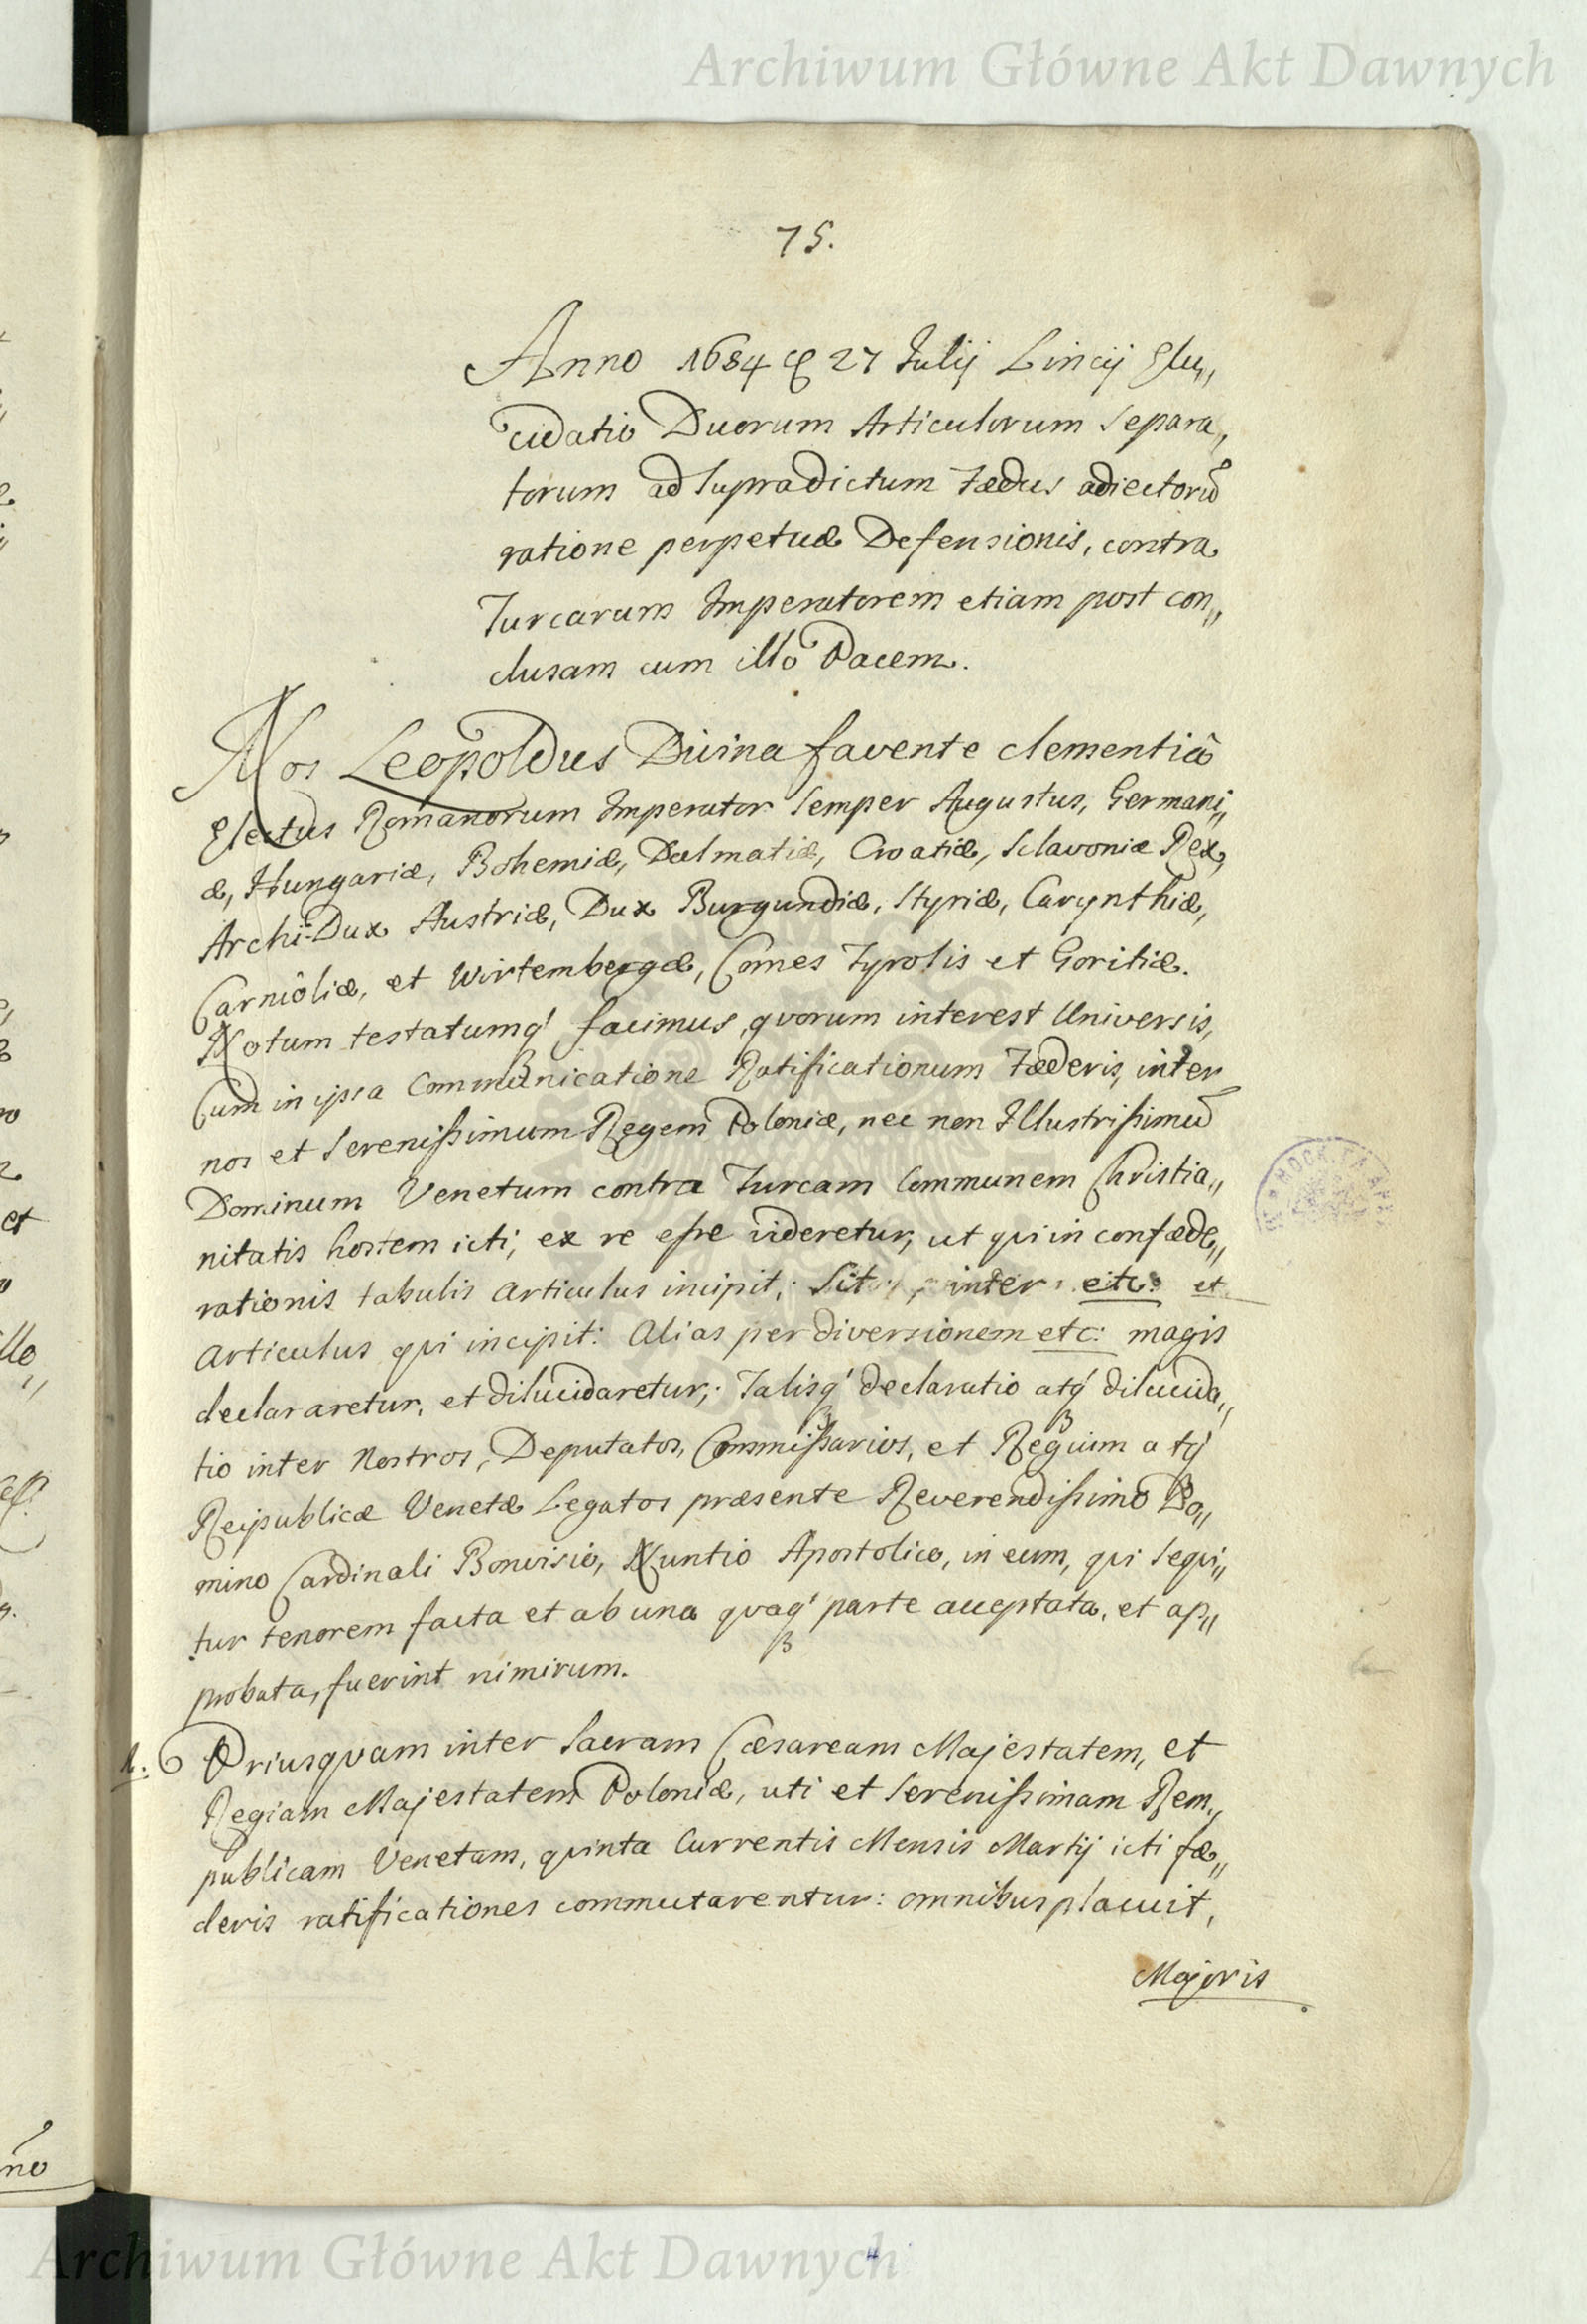 Archiwum Główne Akt Dawnych
75.
Anno 1684 27 Julij Lincij Elu„
cidatio Duorum Articulorum Separa„
torum ad Supradictum Fædus adiectorū
ratione perpetuæ Defensionis, contra
Turcarum Imperatorem etiam post con„
clusam cum illo Pacem.
Nos Leopoldus Divina favente clementiâ
Electus Romanorum Imperator Semper Augustus, Germani„
æ, Hungariæ, Bohemiæ, Dalmatiæ, Croatiæ, Sclavoniæ Rex,
Archi-Dux Austriæ, Dux Burgundiæ, Styriæ, Carynthiæ,
Carnioliæ, et Wirtembergæ, Comes Tyrolis et Goritiæ.
Notum testatumq' facimus, quorum interest Universis,
Cum in ipsa Communicatione Ratificationum Fæderis, inter
nos et Serenißimum Regem Poloniæ, nec non Illustrißimū
Dominum Venetum contra Turcam Communem Christia„
nitatis hostem icti, ex re eße videretur, ut qui in confæde„
rationis tabulis Articulus incipit; Sit inter etc: et
Articulus qui incipit: Alias per diversionem etc: magis
declararetur, et dilucidaretur; Talisq' declaratio atq' dilucida„
tio inter Nostros, Deputatos, Commißarios, et Regium atq'
Reipublicæ Venetæ Legatos præsente Reverendißimo Do„
mino Cardinali Bonvisio, Nuntio Apostolico, in eum, qui Sequi„
tur tenorem facta et ab una quaq' parte acceptata, et ap„
probata, fuerint nimirum.
1. Priusquam inter Sacram Cæsaream Majestatem, et
Regiam Majestatem Poloniæ, uti et Serenißimam Rem„
publicam Venetam, quinta Currentis Mensis Martij icti fæ„
deris ratificationes commutarentur: omnibus placuit,
Majoris
Archiwum Główne Akt Dawnych